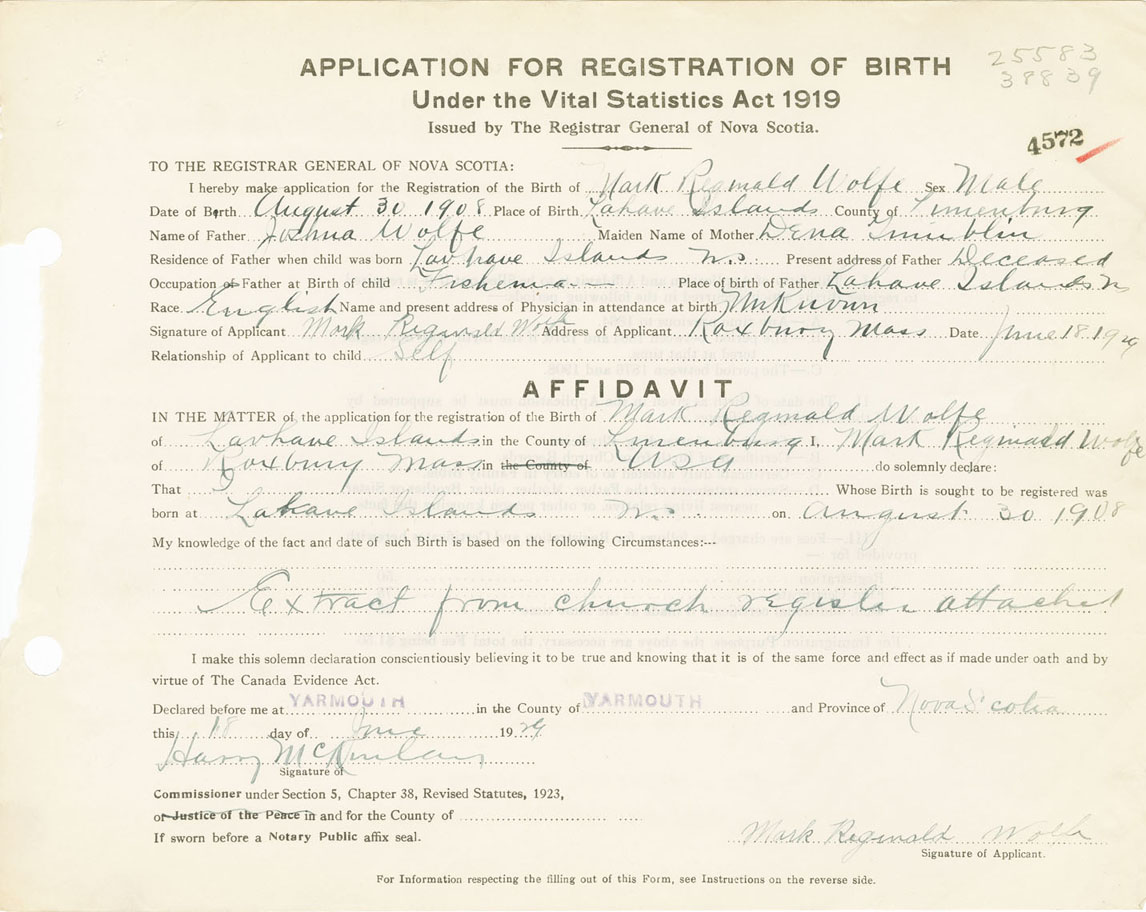 25583
38839
APPLICATION FOR REGISTRATION OF BIRTH
Under the Vital Statistics Act 1919
Issued by The Registrar General of Nova Scotia.
4572
TO THE REGISTRAR GENERAL OF NOVA SCOTIA:
I hereby make application for the Registration of the Birth of Mark Reginald Wolfe Sex Male
Date of Birth August 30 1908 Place of Birth Lahave Islands County of Lunenburg
Name of Father Joshua Wolfe Maiden Name of Mother Dena
Residence of Father when child was born Lavhave Islands N.S. Present address of Father Deceased
Occupation of Father at Birth of child Fisherman Place of birth of Father Lahave Islands N
Race English Name and present address of Physician in attendance at birth UnKnown
Signature of Applicant Mark Reginald Wolfe Address of Applicant Roxbury Mass Date June 18 1929
Relationship of Applicant to child Self
AFFIDAVIT
IN THE MATTER of, the application for the registration of the Birth of Mark Reginald Wolfe
of Lavhave Islands in the County of Lunenburg I, Mark Reginald Wolfe
of Roxbury Mass in the County of USA do solemnly declare:
That I Whose Birth is sought to be registered was
born at Lahave Islands N.S. on August 30 1908
My knowledge of the fact and date of such Birth is based on the following Circumstances:--
Extract from church register attached
I make this solemn declaration conscientiously believing it to be true and knowing that it is of the same force and effect as if made under oath and by
virtue of The Canada Evidence Act.
Declared before me at YARMOUTH in the County of YARMOUTH and Province of Nova Scotia
this 18 day of June 1929
Harry
Signature of
Commissioner under Section 5, Chapter 38, Revised Statutes, 1923,
or Justice of the Peace in and for the County of
If sworn before a Notary Public affix seal.
Mark Reginald Wolfe
Signature of Applicant.
For Information respecting the filling out of this Form, see Instructions on the reverse side.